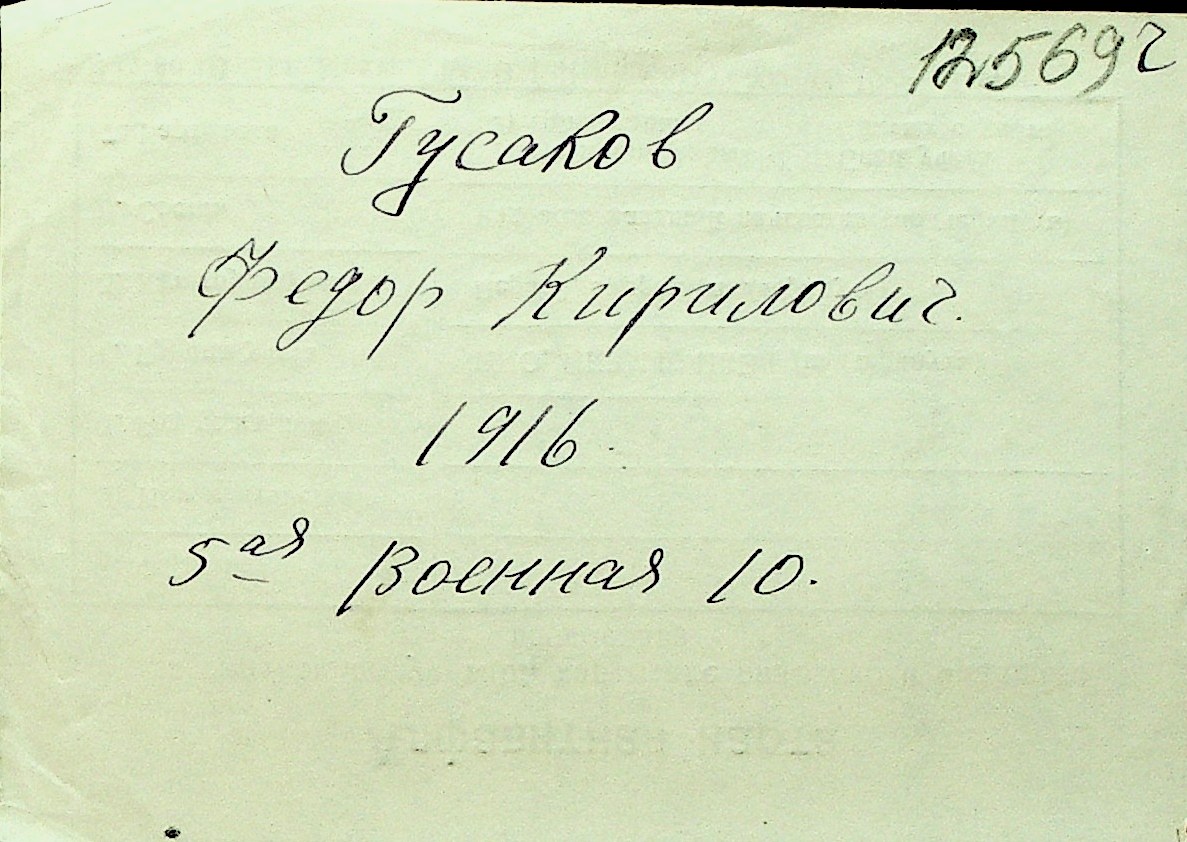 125692
Гусаков
Федор Кирилович.
1916.
5ая Военная 10.